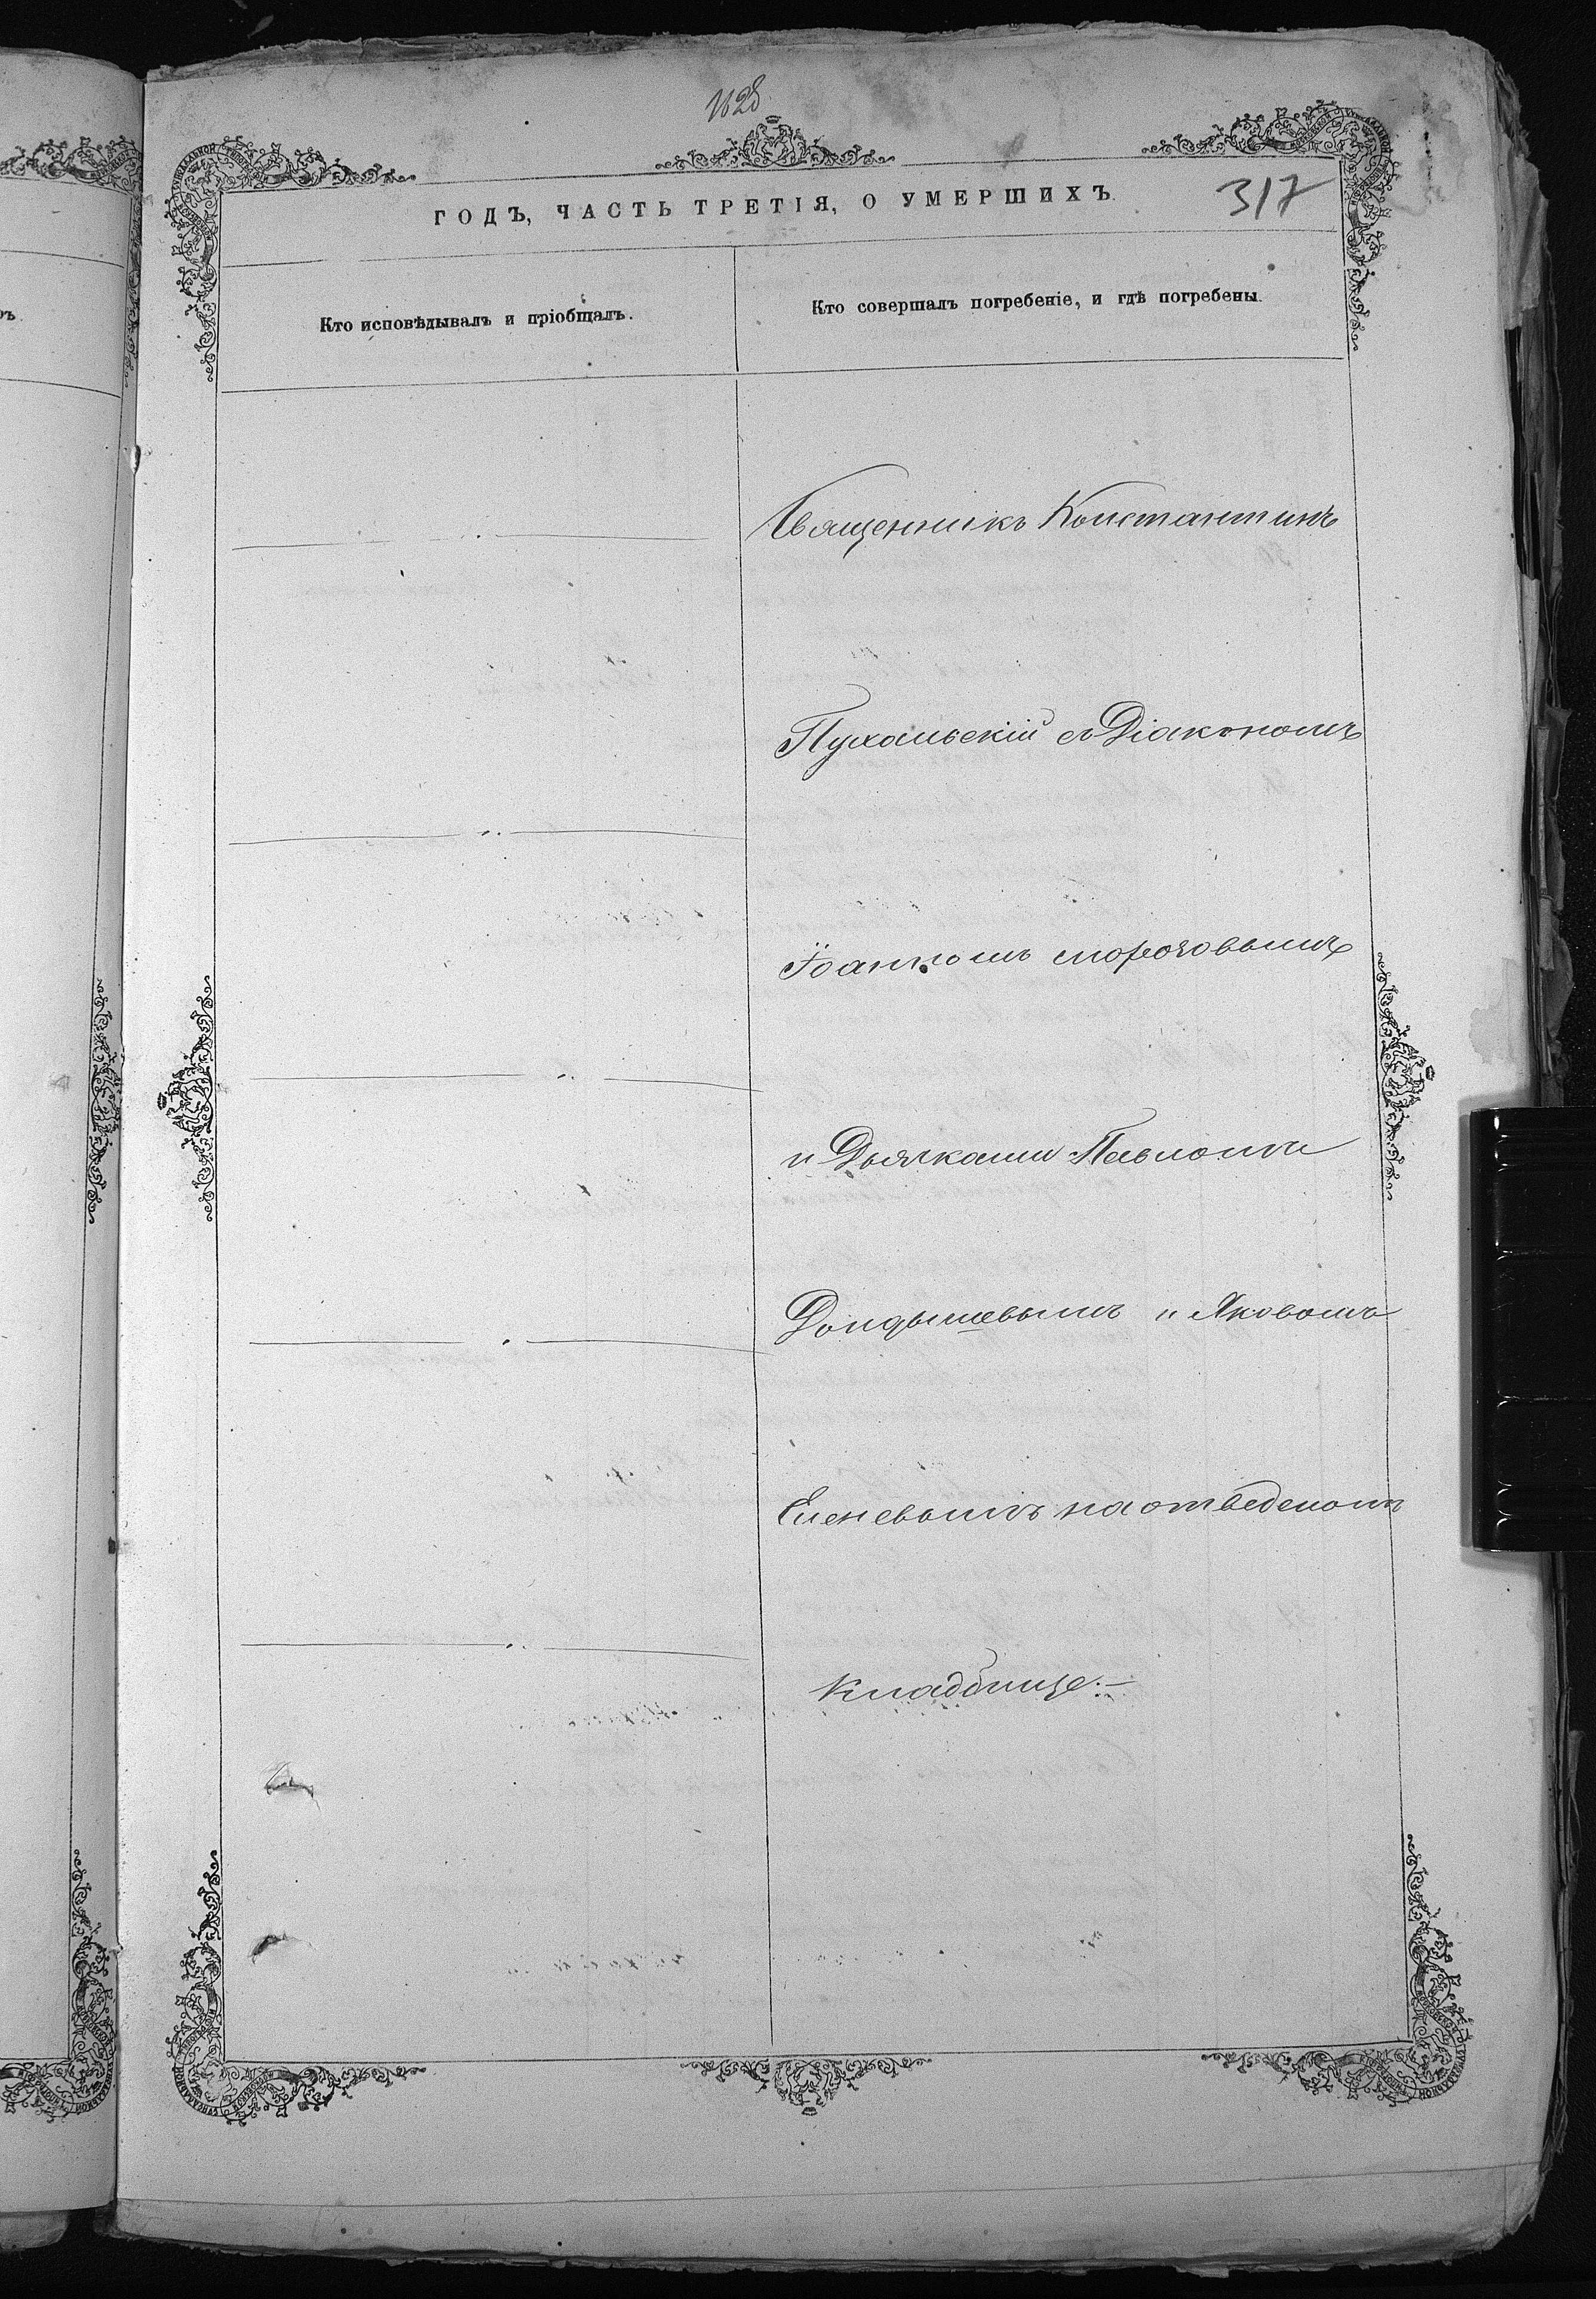 1628
ГОДЪ, ЧАСТЬ ТРЕТІЯ, О УМЕРШИХЪ.
317
Кто исповѣдывалъ и пріобщалъ.
Кто совершалъ погребеніе, и гдѣ погребены.
Священникъ Константинъ
Пухальскій съ Діакономъ
Іоанномъ Морозовымъ
и Дьячками Павломъ
Дондышевымъ и Яковомъ
Еленевымъ на отведеномъ
кладбище.